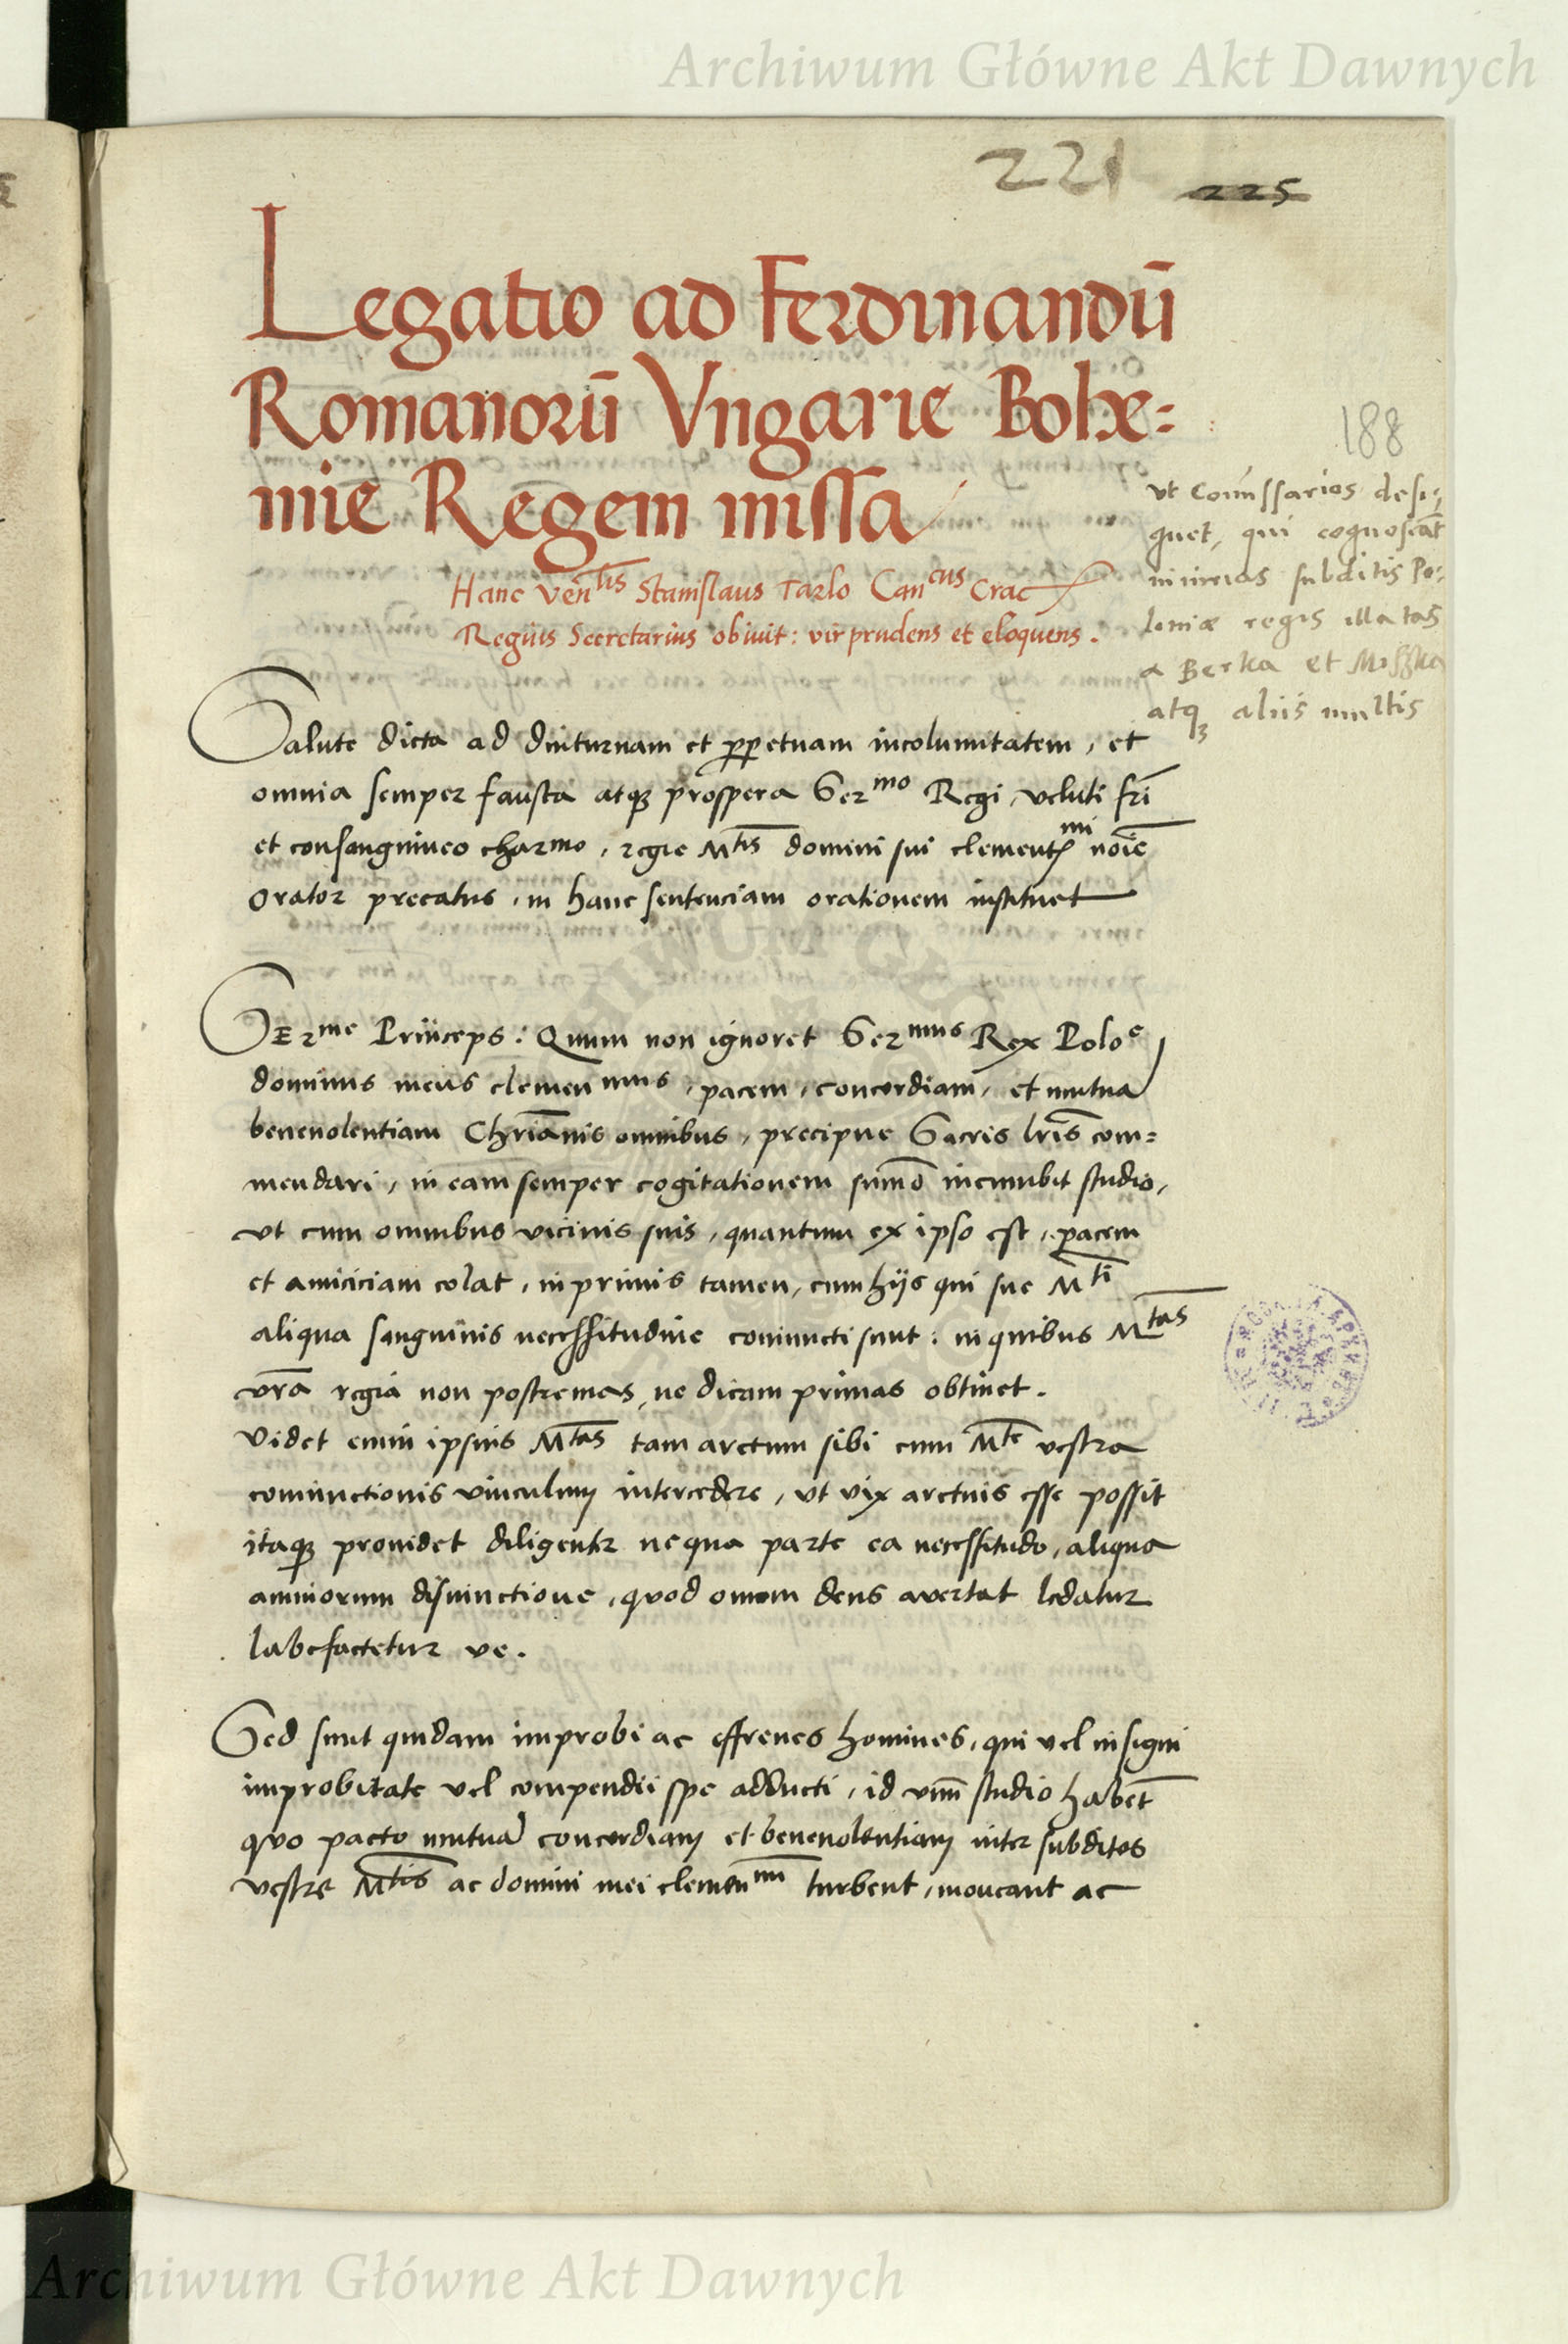 Archiwum Główne Akt Dawnych
221 225
Legatio ad Ferdinandū
Romanorū Vngarie Bohe=
mie Regem missa
Hanc Ven^lis Stanislaus Tarlo Can^cus Crac
Regius Secretarius obiuit: vir prudens et eloquens.
188
vt Com̄issarios desi=
gnet, qui cognoscāt
iniurias subditis Po=
loniæ regis illatas
a Berka et Moszka
atqꝫ aliis multis
Salute dicta ad diuturnam et ꝑpetuam incolumitatem, et
omnia semper fausta atqꝫ prospera Ser^mo Regi, veluti fr̄i
et consanguineo char^mo, regie M^tis domini sui clement^mi noīe
Orator precatus, in hanc sentenciam orationem instituet
SEr^me Princeps: Quum non ignoret Ser^mus Rex Polo^e
dominus meus clemen^mus, pacem, concordiam, et mutuā
beneuolentiam Chrīanis omnibus, precipue Sacris lr̄is com=
mendari, in eam semper cogitationem summo incumbit studio,
vt cum omnibus vicinis suis, quantum ex ipso est, pacem
et amiciciam colat, inprimis tamen, cum hijs qui sue M^ti
aliqua sanguinis necessitudine coniuncti sunt: in quibus M^tas
vr̄a regia non postremas, ne dicam primas obtinet.
Videt enim ipsius M^tas tam arctum sibi cum M^te vestra
coniunctionis vinculum intercedere, vt vix arctius esse possit
itaqꝫ prouidet diligenter ne qua parte ea necessitudo, aliqua
animorum disiunctione, quod omem deus avertat ledatur
labefactetur ve.
Sed sunt quidam improbi ac effrenes homines, qui vel insigni
improbitate vel compendii spe adducti, id vnū studio habēt
quo pacto mutuā concordiam et beneuolentiam inter subditos
vestre M^tis ac domini mei clemen^mi turbent, moueant ac
Archiwum Główne Akt Dawnych